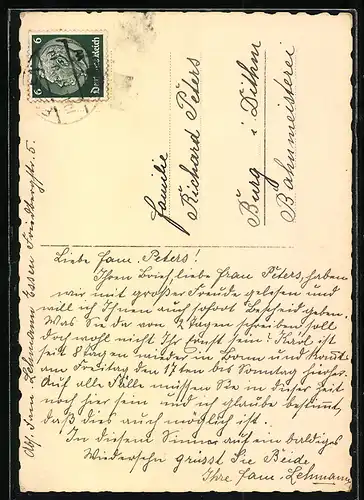 6 6
Deutsches Reich
Familie
Richard Peters
Burg i. Dithm
Bahnmeisterei
Abs. Fam. Lehmann Essen Friedbergstr. 5.
Liebe Fam. Peters!
Ihren Brief, liebe Frau Peters, haben
wir mit großer Freude gelesen und
will ich Ihnen auch sofort Bescheid geben.
Was Sie da von 2 Tagen schreiben soll
doch wohl nicht Ihr Ernst sein? Karl ist
seit 8 Tagen wieder in Bonn und kommt
am Freitag den 17ten bis Sonntag hierher.
Auf alle Fälle müssen Sie in dieser Zeit
noch hier sein und ich glaube bestimmt,
daß dies auch möglich ist.
In diesem Sinne auf ein baldiges
Wiedersehn grüsst Sie Beide
Ihre Fam. Lehmann